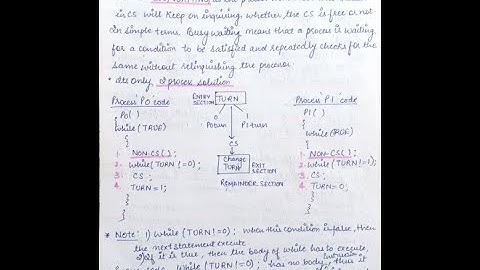 in CS will keep on inquiring whether the CS is free or not
in simple terms, Busy waiting means that a process is waiting
for a condition to be satisfied and repeatedly checks for the
same without relinquishing the processor
• Its Only 2 process solution
Process 'P0' code
P0( )
{
while(TRUE)
{
1. NON-CS( );
2. while(TURN!=0);
3. CS;
4. TURN=1;
}
}
ENTRY SECTION
TURN
0
1
P0 turn
P1 turn
CS
Change TURN
EXIT SECTION
REMAINDER SECTION
Process 'P1' code
P1( )
{
while(TRUE)
{
1. NON-CS( );
2. while(TURN!=1);
3. CS
4. TURN=0;
}
}
* Note: 1) while (TURN!=0); when this condition is false, then
the next statement execute
2) as it is true, then the body of while has to execute,
while (TURN!=0); has no body, thus it